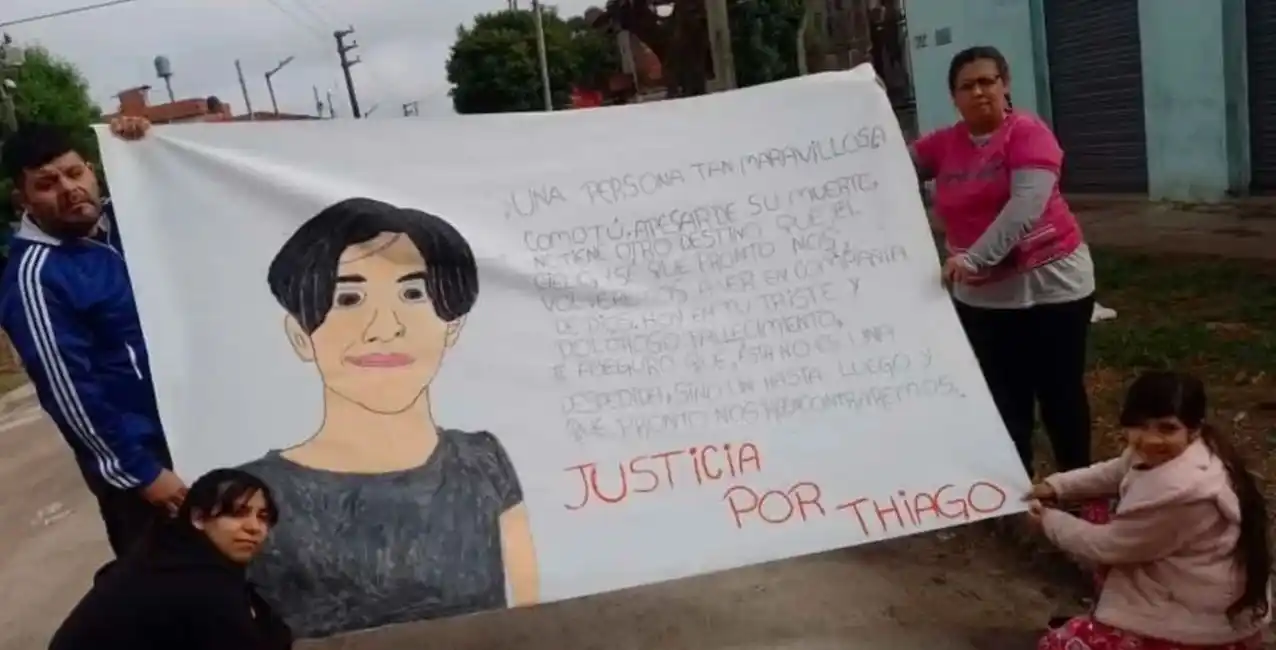 ¡UNA PERSONA TAN MARAVILLOSA
COMO TÚ, APESAR DE SU MUERTE,
NO TIENE OTRO DESTINO QUE EL
CIELO, SÉ QUE PRONTO NOS
VOLVEREMOS A VER EN COMPAÑIA
DE DIOS, HOY EN TU TRISTE Y
DOLOROSO FALLECIMIENTO,
TE ASEGURO QUE, ÉSTA NO ES UNA
DESPEDIDA, SINO UN HASTA LUEGO Y
QUE PRONTO NOS
JUSTICIA
POR THIAGO